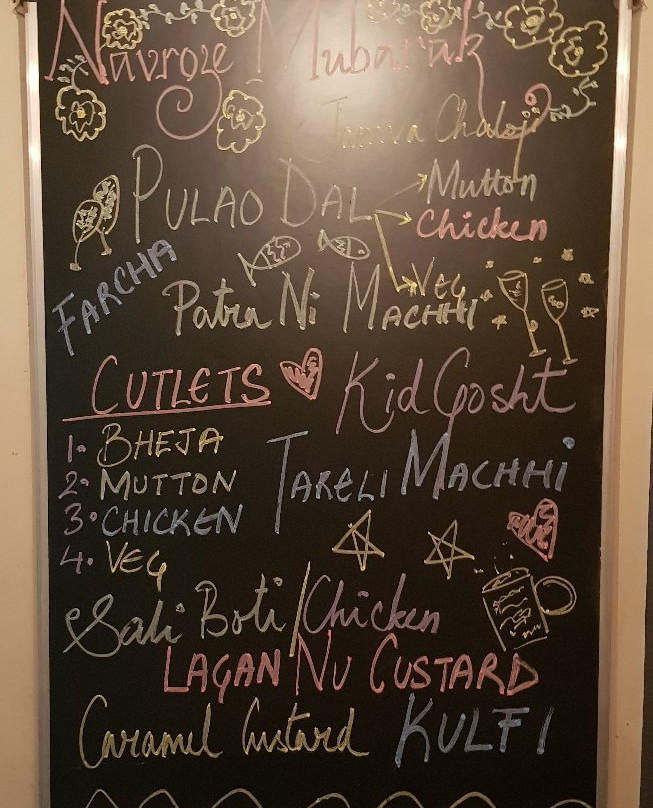 Navroze Mubarak
Jamva Chaloji
PULAO DAL
Mutton
Chicken
Veg
FARCHA
Patra Ni MACHHI
CUTLETS
Kid Gosht
1. BHEJA
2. MUTTON
3. CHICKEN
4. VEG
TARELI MACHHI
Sali Boti/Chicken
LAGAN NU CUSTARD
Caramel Custard
KULFI